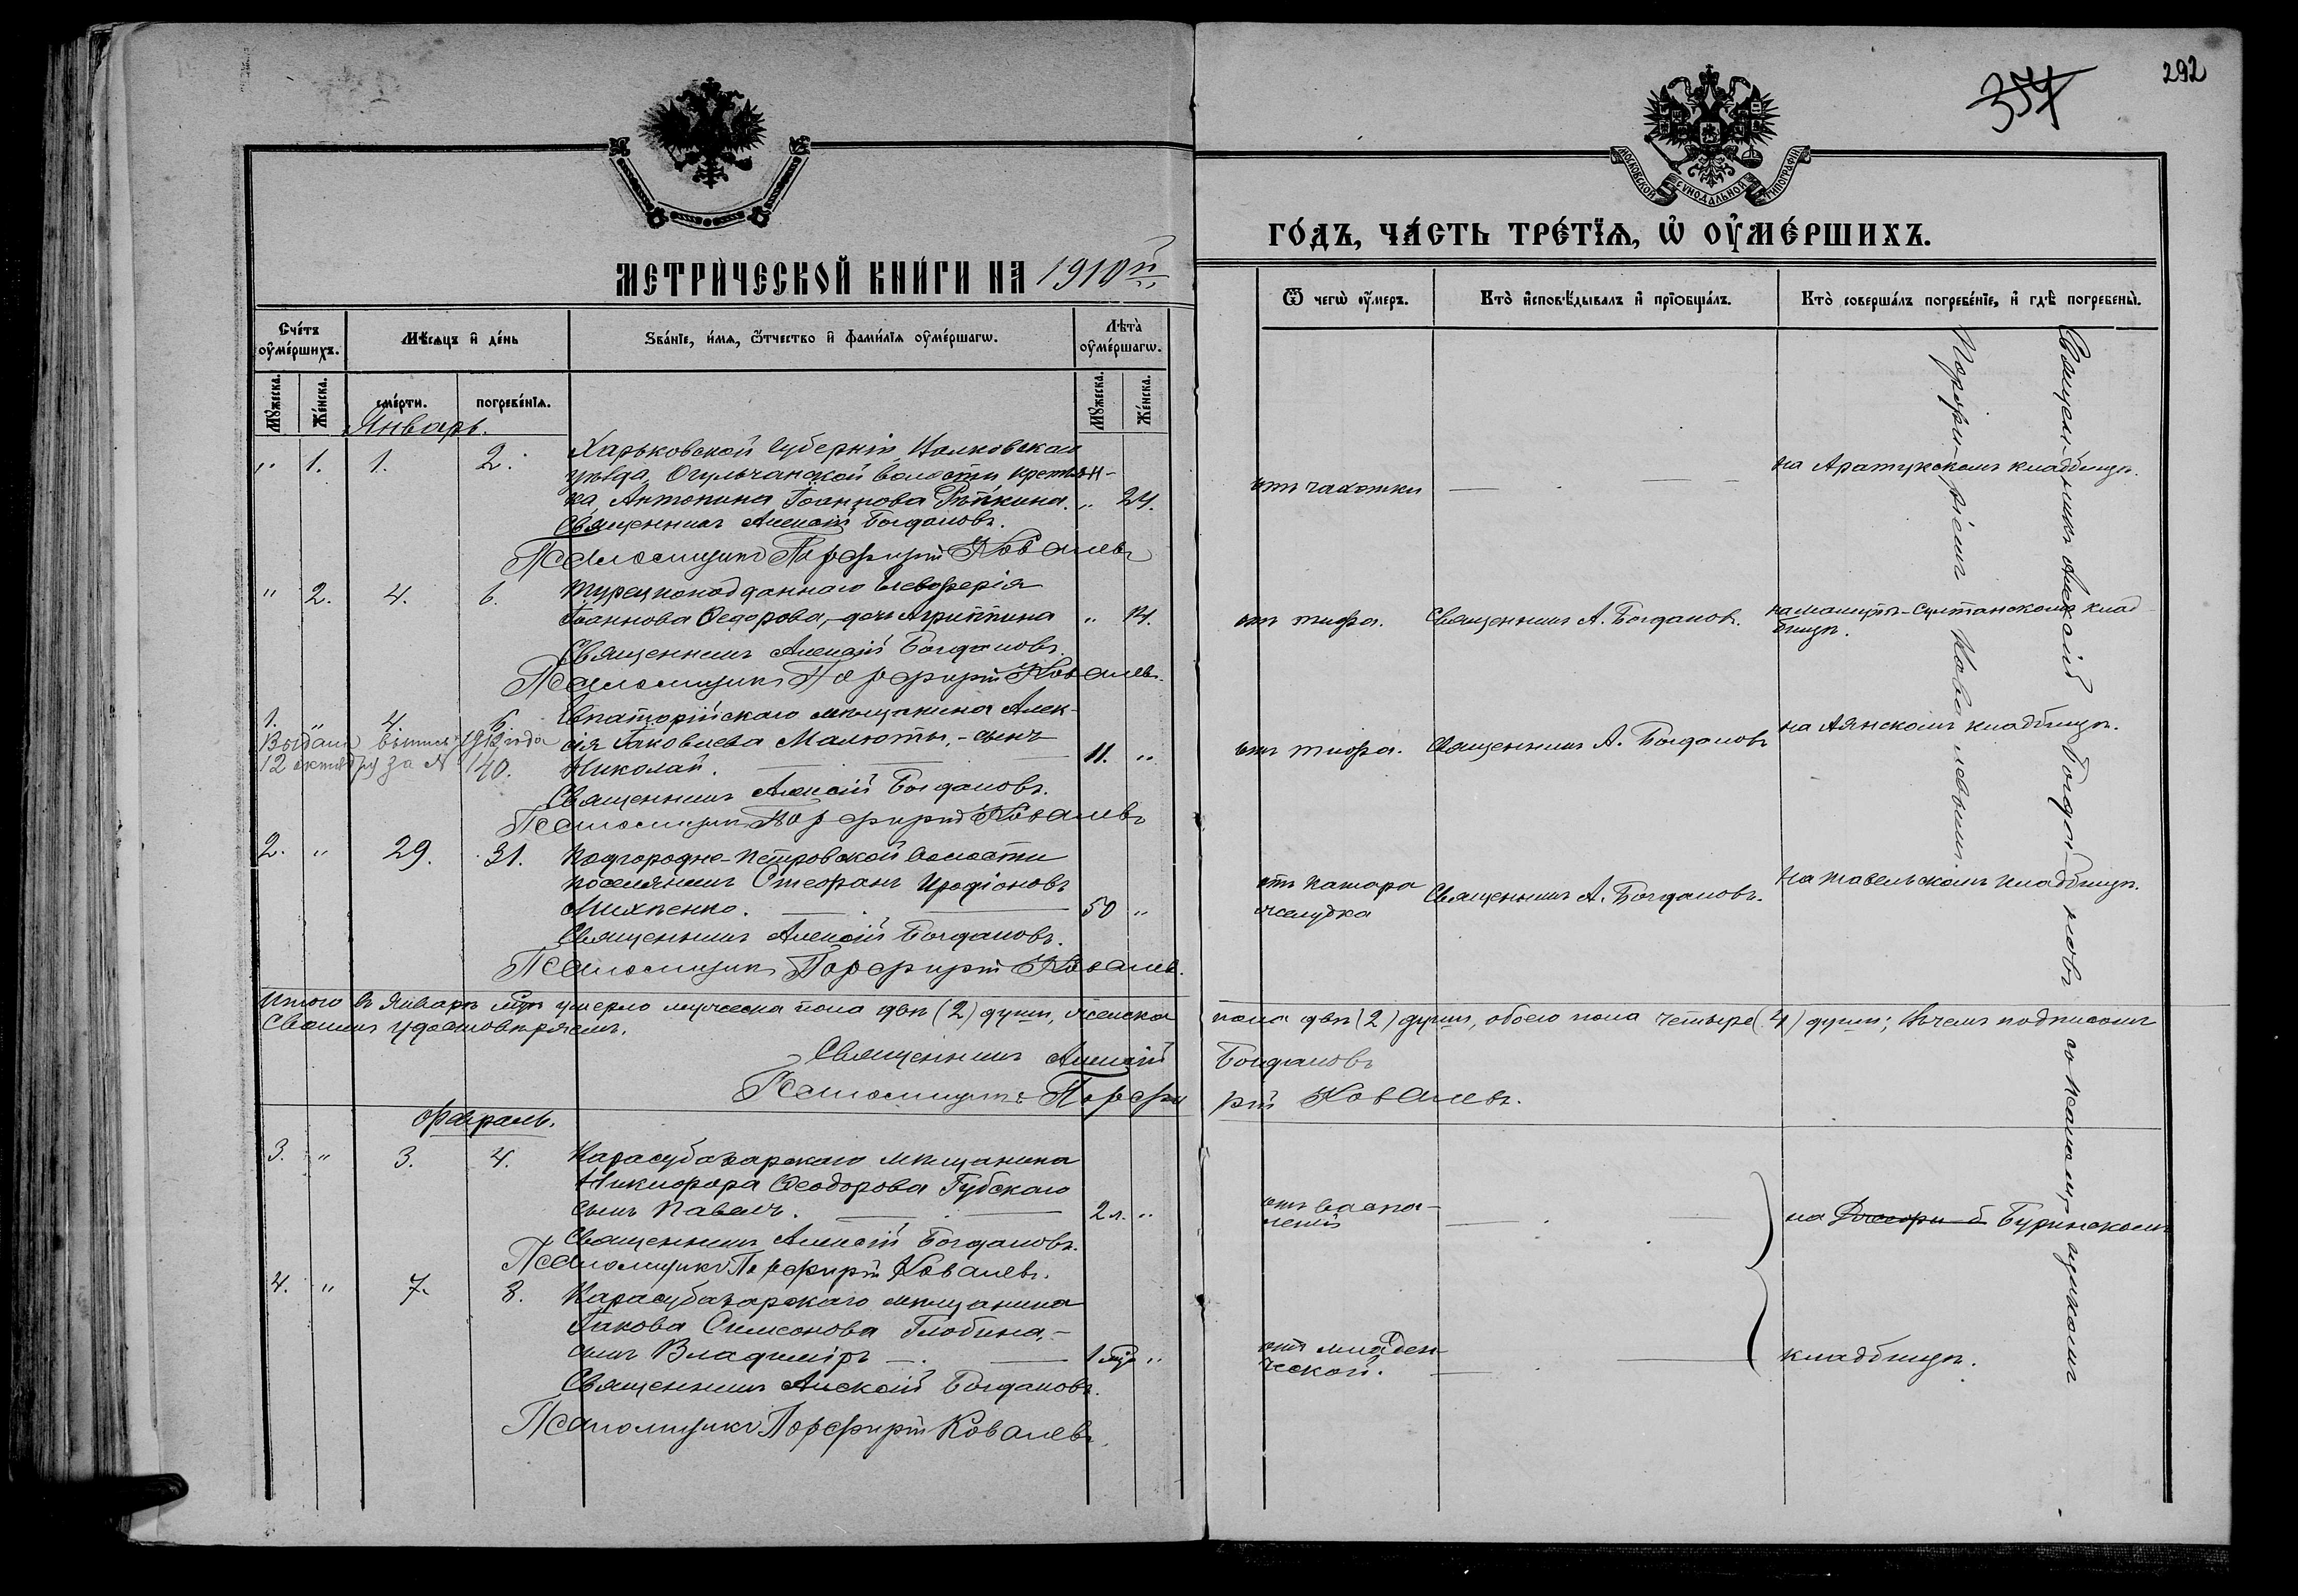 292
МОСКОВСКОЙ СѴНОДАЛЬНОЙ ТИПОГРАФІИ
МЕТРИЧЕСКОЙ КНИГИ НА 1910й
ГОДЪ, ЧАСТЬ ТРЕТІЯ, Ѡ ОУМЕРШИХЪ.
Счетъ оумершихъ.
Мѣсяцъ и день
Званіе, имя, ѿчество и фамилія оумершагѡ.
Лѣта оумершагѡ.
Ѿ чегѡ оумеръ.
Кто исповѣдывалъ и пріобщалъ.
Кто совершалъ погребеніе, и гдѣ погребены.
Мужеска.
Женска.
смерти.
погребенія.
Мужеска.
Женска.
Январь.
„ 1. 1. 2. Харьковской губерніи, Валковскаго
уѣзда, Огульчанской волости крестьян-
ка Антонина Іоаннова Рѣпкина. „ 24.
отъ чахотки
на Аратукскомъ кладбищѣ.
Священникъ Алексій Богдановъ.
Псаломщикъ Порфирій Ковалевъ
„ 2. 4. 6. Турецкоподданнаго Елевферія
Іоаннова Федорова, - дочь Агриппина „ 14.
отъ тифа. Священникъ А. Богдановъ. на Мамутъ-Султанскомъ клад-
бищѣ.
Священникъ Алексій Богдановъ.
Псаломщикъ Порфирій Ковалевъ.
1. „ 4. 6. Евпаторійскаго мѣщанина Алек-
сія Іаковлева Малюты, - сынъ
Николай. 11. „
отъ тифа. Священникъ А. Богдановъ на Аянскомъ кладбищѣ.
Выдана выпись 1912 года
12 октября за № 140.
Священникъ Алексій Богдановъ.
Псаломщикъ Порфирій Ковалевъ
2. „ 29. 31. Подгородне-Петровской волости
поселянинъ Стефанъ Иродіоновъ
50 „
отъ катара
желудка
Священникъ А. Богдановъ. на Тавельскомъ кладбищѣ.
Священникъ Алексій Богдановъ.
Псаломщикъ Порфирій Ковалев.
Итого въ Январѣ м-цѣ умерло мужеска пола двѣ (2) души, женска пола двѣ (2) души, обоего пола четыре (4) души; въ чемъ подписомъ
своимъ удостовѣряемъ.
Священникъ Алексій Богдановъ
Псаломщикъ Порфирій Ковалевъ.
Февраль.
3. „ 3. 4. Карасубазарскаго мѣщанина
Никифора Феодорова Губскаго
сынъ Павелъ. 2 л. „
отъ воспа-
ленія
на Буринскомъ
Священникъ Алексій Богдановъ.
Псаломщикъ Порфирій Ковалевъ.
4. „ 7. 8. Карасубазарскаго мѣщанина
Іакова Симеонова Глобина, -
сынъ Владиміръ 1 „
отъ младен-
ческой.
кладбищѣ.
Священникъ Алексій Богдановъ.
Псаломщикъ Порфирій Ковалевъ.
Священникъ Алексій Богдановъ съ псаломщикомъ
Порфиріемъ Ковалевымъ.